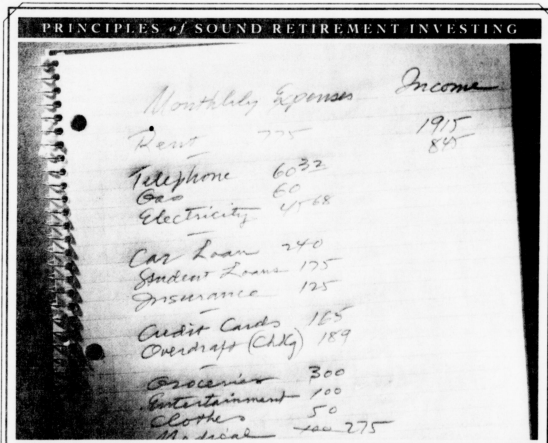 PRINCIPLES of SOUND RETIREMENT INVESTING
Monthlily Expenses Income
Rent 775 1915
845
Telephone 60 32
Gas 60
Electricity 45 68
Car Loan 240
Student Loans 175
Insurance 125
Credit Cards 165
Overdraft (Chkg) 189
Groceries 300
Entertainment 100
Clothes 50
Medical 100 275